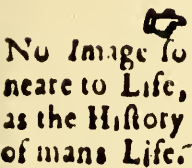 No Image ſo
neare to Life,
as the Hiſtory
of mans Life